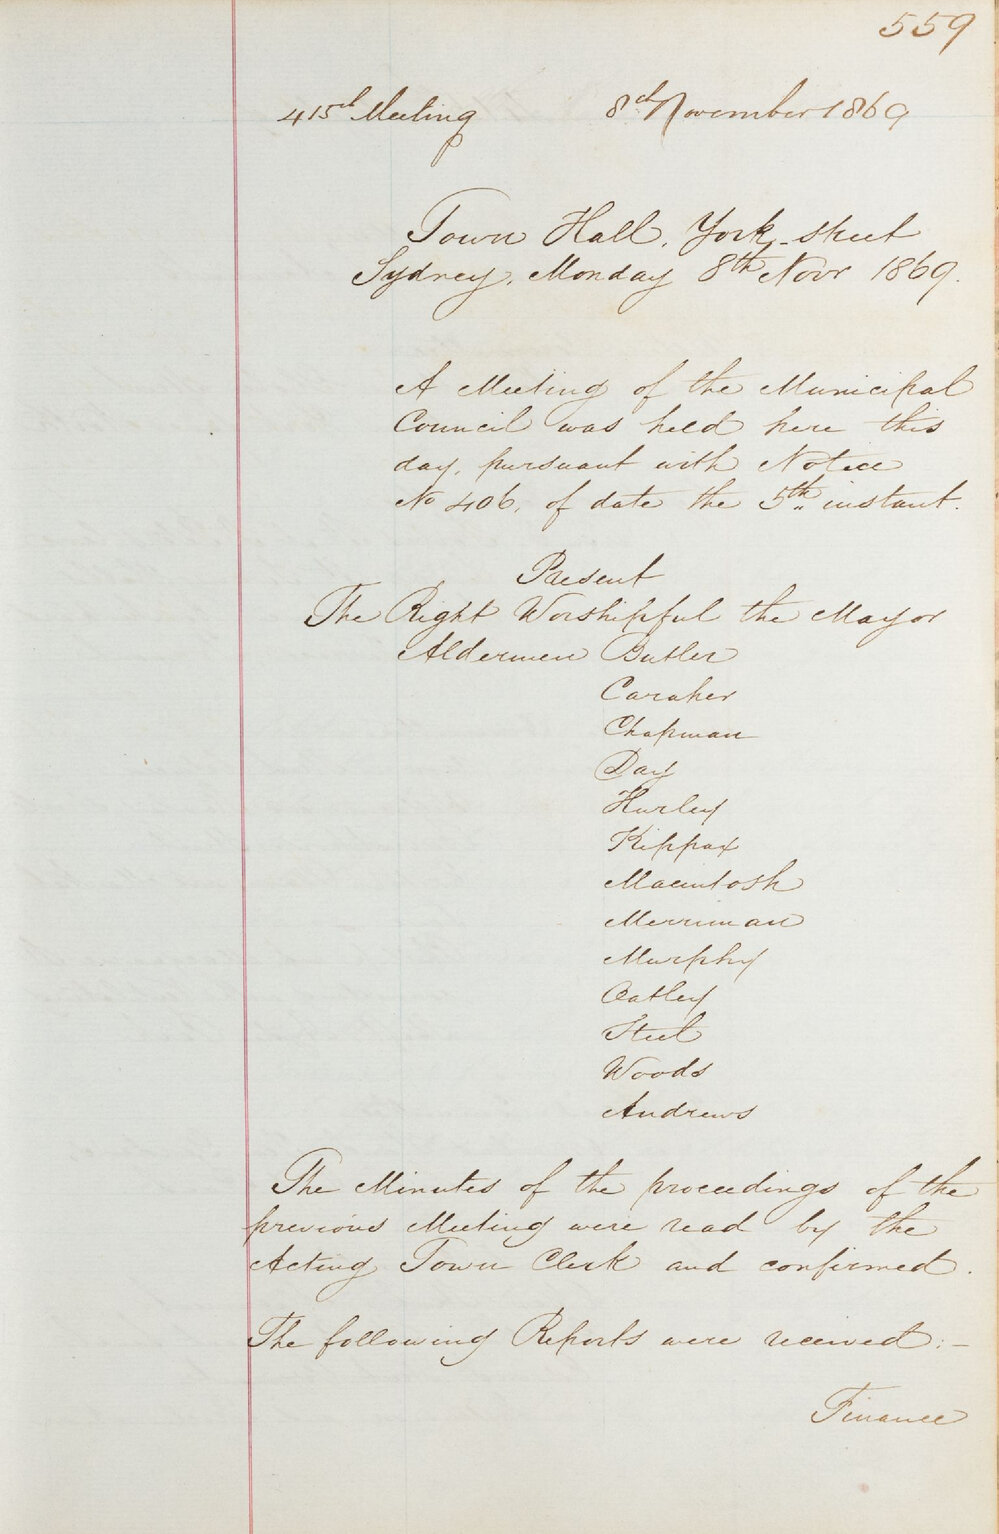 559
415th Meeting 8th November 1869
Town Hall, York-street
Sydney, Monday 8th Novr 1869.
A Meeting of the Municipal
Council was held here this
day, pursuant with Notice
No 406, of date the 5th instant.
Present
The Right Worshipful the Mayor
Aldermen Butler
Caraher
Chapman
Day
Hurley
Kippax
Macintosh
Merriman
Murphy
Oatley
Steel
Woods
Andrews
The Minutes of the proceedings of the
previous Meeting were read by the
Acting Town Clerk and confirmed.
The following Reports were received:-
Finance